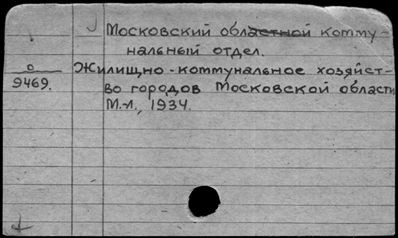 Московский областной комму-
нальный отдел.
О
9469.
Жилищно-коммунальное хозяйст-
во городов Московской области
М.-Л., 1934.